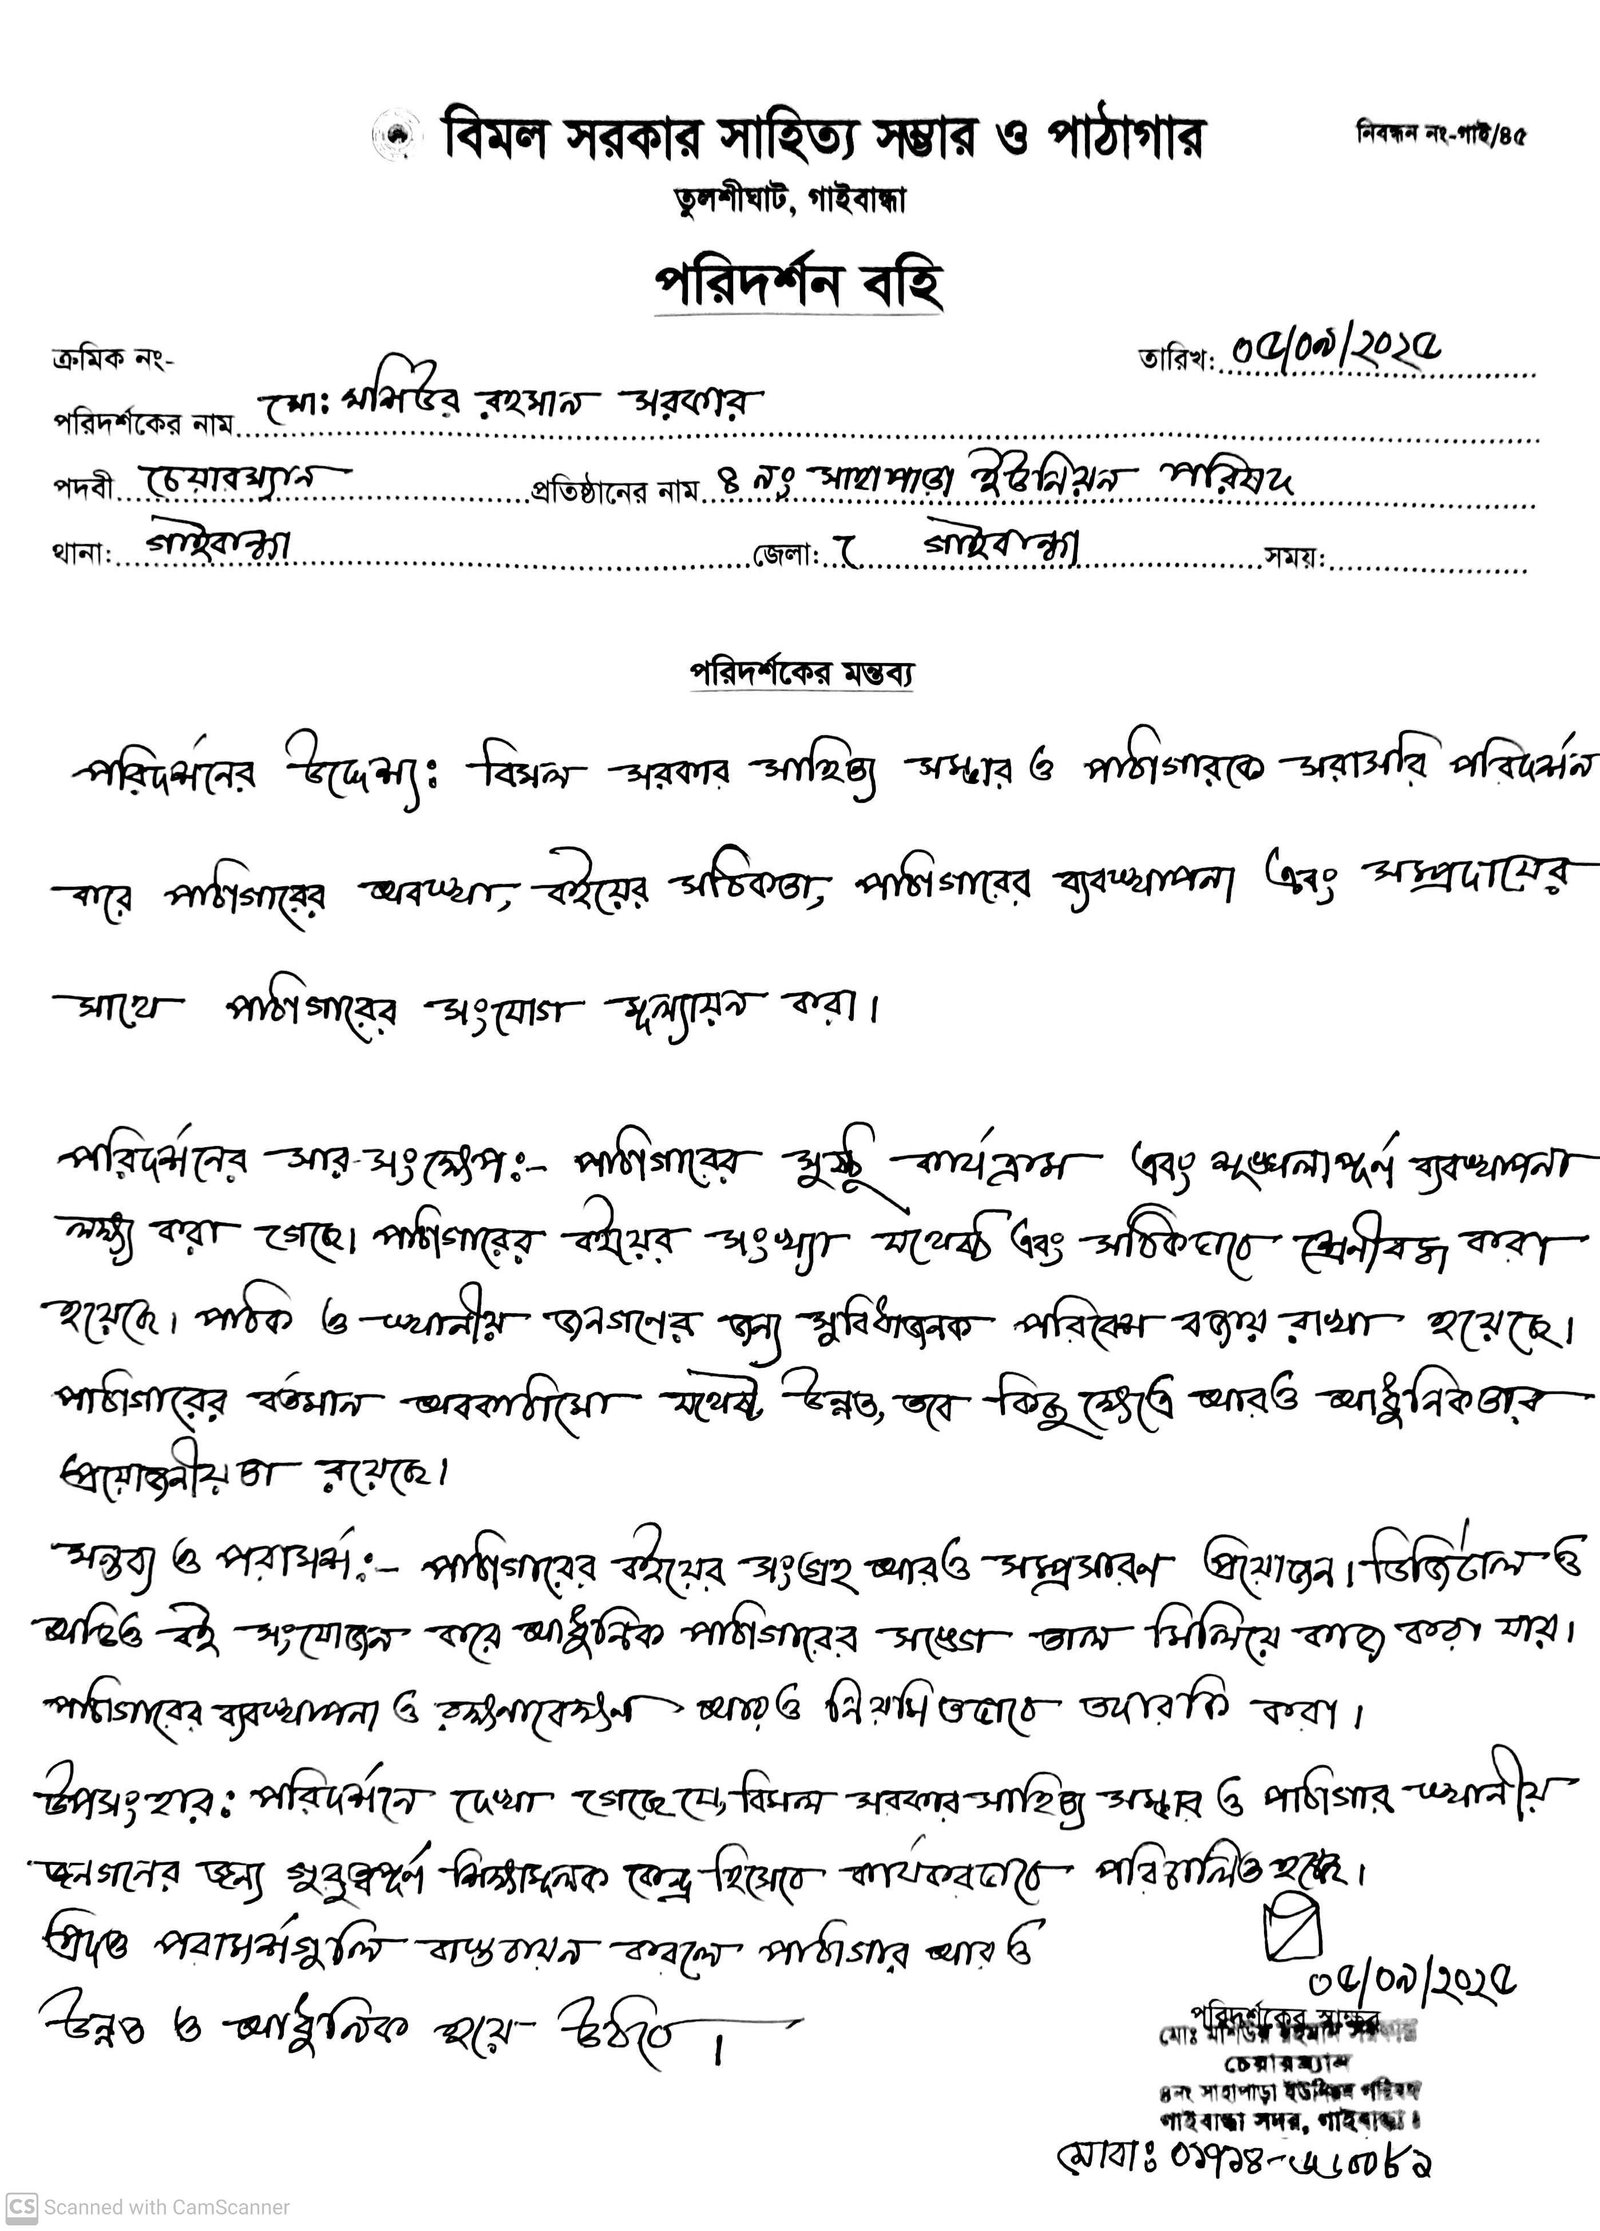 বিমল সরকার সাহিত্য সম্ভার ও পাঠাগার
নিবন্ধন নং-গাই/৪৫
তুলশীঘাট, গাইবান্ধা
পরিদর্শন বহি
ক্রমিক নং-
তারিখ: ০৫/০৯/২০২৫
পরিদর্শকের নাম মো: মশিউর রহমান সরকার
পদবী চেয়ারম্যান প্রতিষ্ঠানের নাম ৪ নং সাহাপাড়া ইউনিয়ন পরিষদ
থানা: গাইবান্ধা জেলা: গাইবান্ধা সময়:
পরিদর্শকের মন্তব্য
পরিদর্শনের উদ্দেশ্য: বিমল সরকার সাহিত্য সম্ভার ও পাঠাগারকে সরাসরি পরিদর্শন
করে পাঠাগারের অবস্থা, বইয়ের সঠিকতা, পাঠাগারের ব্যবস্থাপনা এবং সম্প্রদায়ের
সাথে পাঠাগারের সংযোগ মূল্যায়ন করা।
পরিদর্শনের সার-সংক্ষেপ:- পাঠাগারের সুষ্ঠু কার্যক্রম এবং শৃঙ্খলাপূর্ণ ব্যবস্থাপনা
লক্ষ্য করা গেছে। পাঠাগারের বইয়ের সংখ্যা যথেষ্ট এবং সঠিকভাবে শ্রেনীবদ্ধ করা
হয়েছে। পাঠক ও স্থানীয় জনগণের জন্য সুবিধাজনক পরিবেশ বজায় রাখা হয়েছে।
পাঠাগারের বর্তমান অবকাঠামো যথেষ্ট উন্নত, তবে কিছু ক্ষেত্রে আরও আধুনিকতার
প্রয়োজনীয়তা রয়েছে।
মন্তব্য ও পরামর্শ:- পাঠাগারের বইয়ের সংগ্রহ আরও সম্প্রসারণ প্রয়োজন। ডিজিটাল ও
অডিও বই সংযোজন করে আধুনিক পাঠাগারের সঙ্গে তাল মিলিয়ে কাজ করা যায়।
পাঠাগারের ব্যবস্থাপনা ও রক্ষনাবেক্ষণ আরও নিয়মিতভাবে তদারকি করা।
উপসংহার: পরিদর্শনে দেখা গেছে যে, বিমল সরকার সাহিত্য সম্ভার ও পাঠাগার স্থানীয়
জনগনের জন্য গুরুত্বপূর্ণ শিক্ষামূলক কেন্দ্র হিসেবে কার্যকরভাবে পরিচালিত হচ্ছে।
প্রদত্ত পরামর্শগুলি বাস্তবায়ন করলে পাঠাগার আরও
উন্নত ও আধুনিক হয়ে উঠবে।
০৫/০৯/২০২৫
পরিদর্শকের স্বাক্ষর
মোঃ মশিউর রহমান সরকার
চেয়ারম্যান
৪নং সাহাপাড়া ইউনিয়ন পরিষদ
গাইবান্ধা সদর, গাইবান্ধা।
মোবা:
CS Scanned with CamScanner